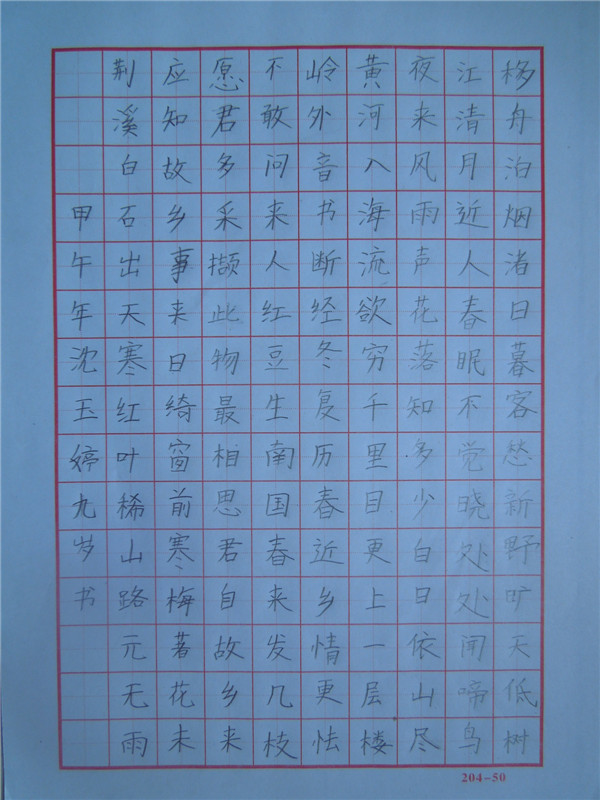 移舟泊烟渚日暮客愁新野旷天低树
江清月近人春眠不觉晓处处闻啼鸟
夜来风雨声花落知多少白日依山尽
黄河入海流欲穷千里目更上一层楼
岭外音书断经冬复历春近乡情更怯
不敢问来人红豆生南国春来发几枝
愿君多采撷此物最相思君自故乡来
应知故乡事来日绮窗前寒梅著花未
荆溪白石出天寒红叶稀山路元无雨
甲午年沈玉婷九岁书
204-50